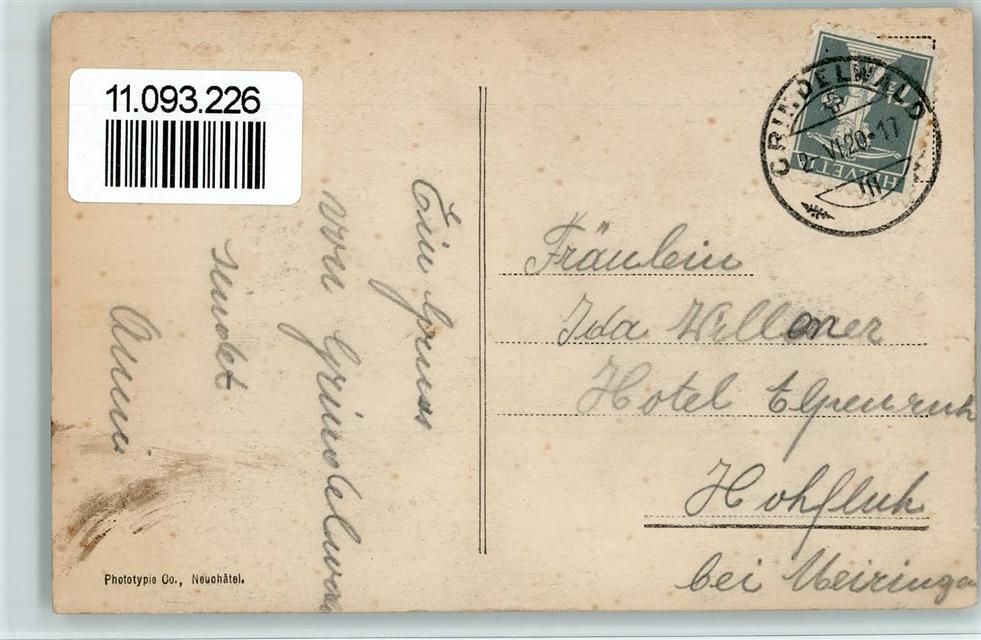 11.093.226
Ein Gruss
von Grindelwa
sendet
Anni
Phototypie Co., Neuchâtel.
GRINDELWALD
VI.20-11
HELVETIA
Fräulein
Ida
Hotel Alpenruh
Hohfluh
bei Meiringen